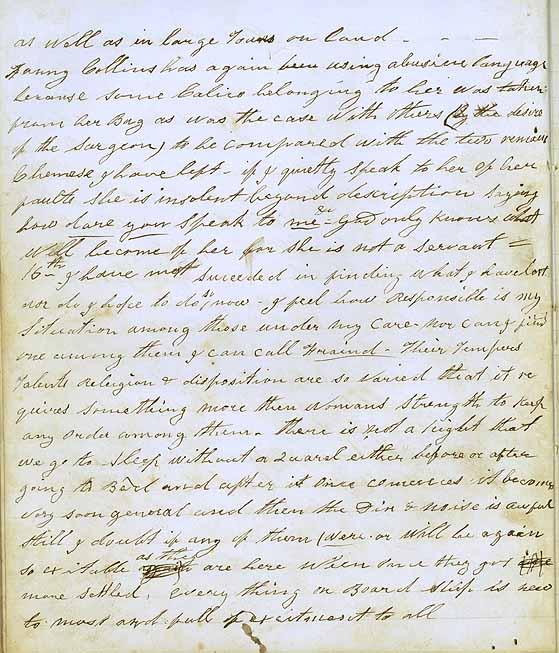 as well as in large Towns on Land - - -
Fanny Collins has again been using abusive language
because some Calico belonging to her was taken
from her Bag as was the case with others (by the desire
of the Surgeon) to be compared with the two remains
Chemese I have left - if I quietly speak to her of her
faults she is insolent beyond description saying
how dare you speak to me - God only knows what
will become of her for she is not a servant =
16th I have not succeeded in finding what I have lost
nor do I hope to do so, now - I feel how Responsible is my
Situation among those under my care - nor can I find
one among them I can call Fraind - Their Tempers
Talents Religion & disposition are so varied that it re
quires something more then Womans strength to keep
any order among them - there is not a night that
we go to sleep without a Quarel either before or after
going to Bed and after it once comences it becomes
very soon general and then the Din & noise is awful
still I doubt if any of them were or will be again
so exitable as they are here when once they get
more settled, every thing on Board Ship is new
to most and full of exitement to all